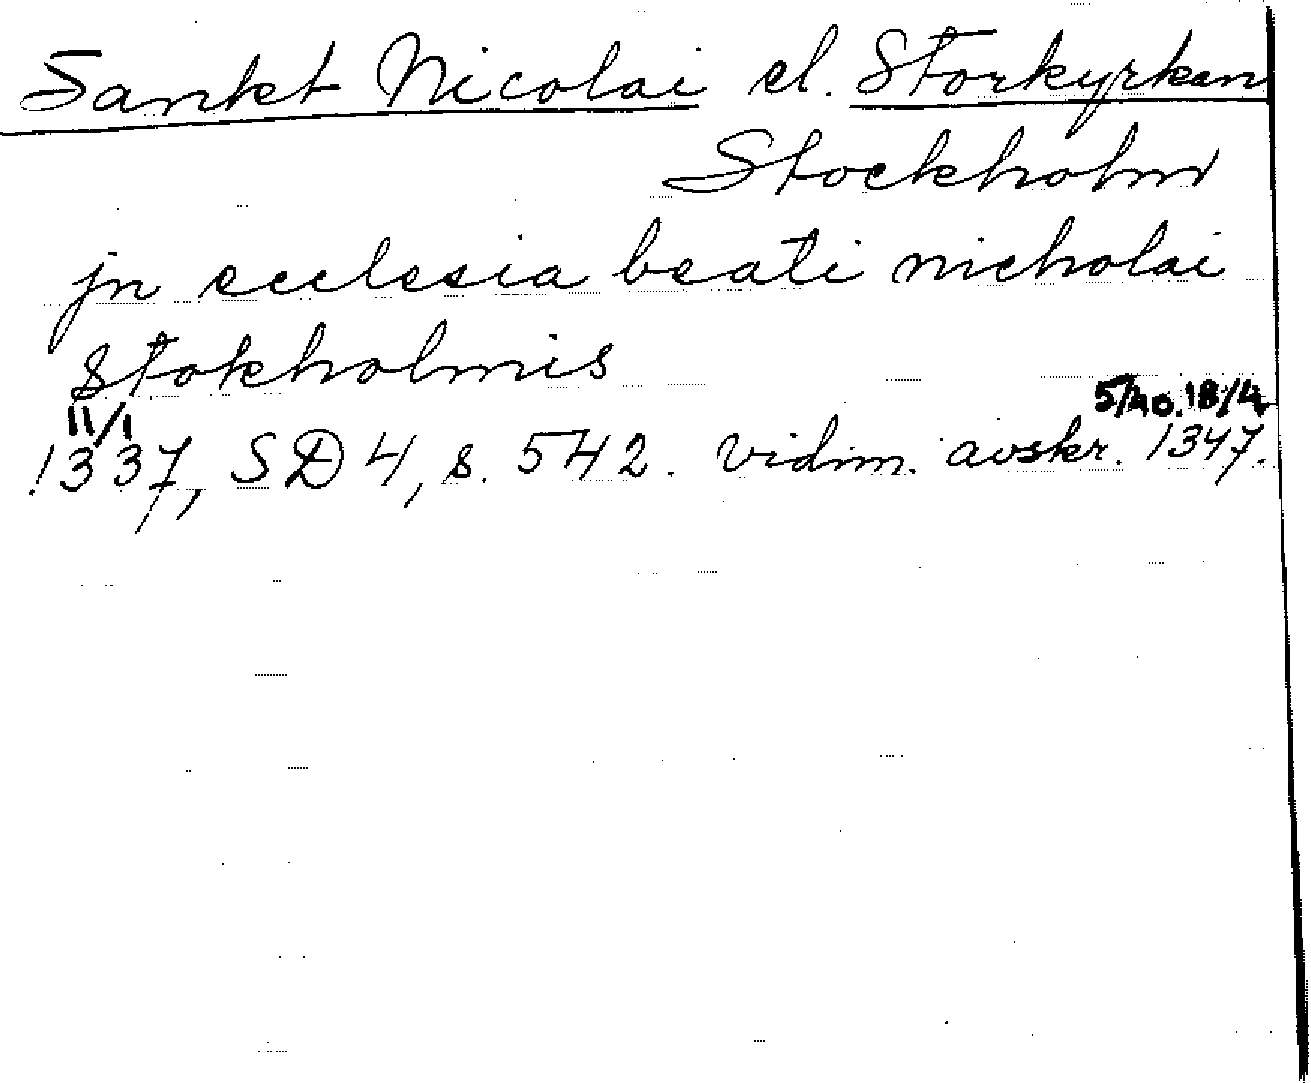 Sankt Nicolai el. Storkyrkan
Stockholm
jn ecclesia beati nicholai
Stokholmis
11/1 5/40. 18/4
1337, SD 4, s. 542. vidim. avskr. 1347.